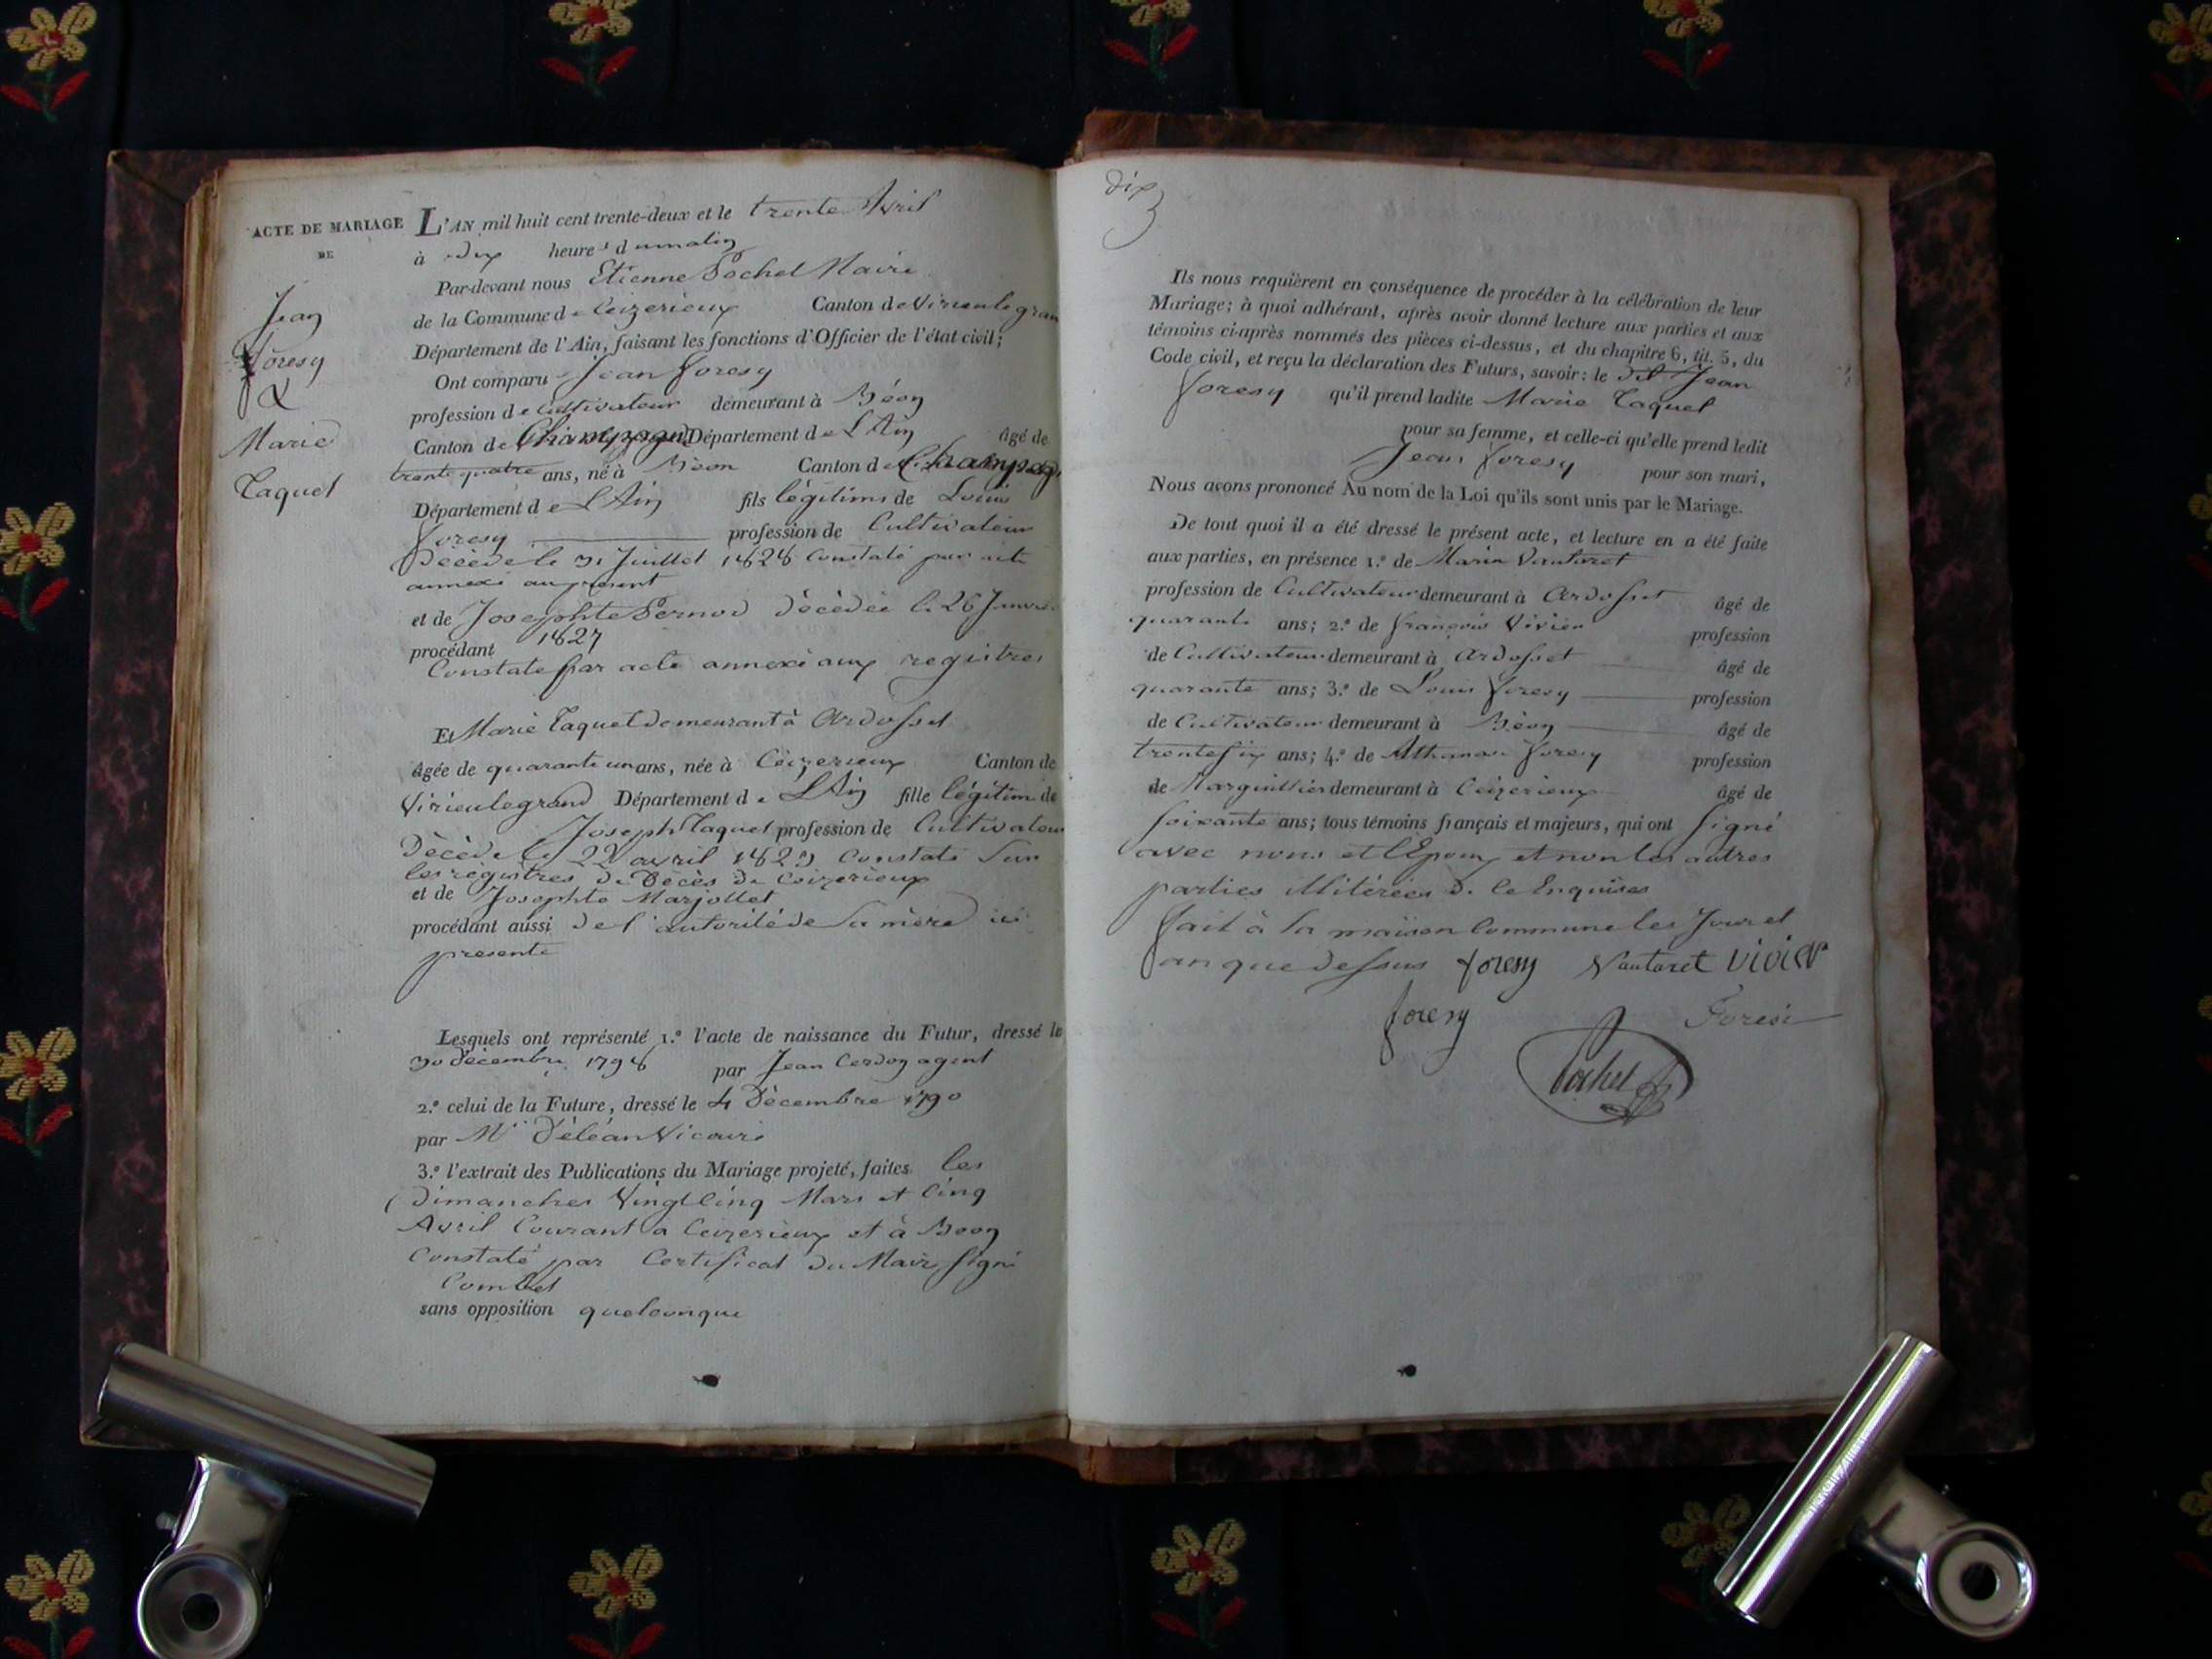 ACTE DE MARIAGE
DE
Jean
Foresy
&
Marie
Taquet
L'AN mil huit cent trente-deux et le trente Avril
à dix heures du matin
Par-devant nous Etienne Pochet Maire
de la Commune de Ceizerieux Canton de Virieu le gran
Département de l'Ain, faisant les fonctions d'Officier de l'état civil;
Ont comparu Jean Foresy
profession de Cultivateur demeurant à Béon
Canton de Champagne Département de L'Ain âgé de
trente quatre ans, né à Béon Canton de Champag
Département de L'Ain fils légitime de Louis
Foresy profession de Cultivateur
Décédé le 31 Juillet 1828 Constaté par acte
annexé au présent
et de Josephte Pernod décédée le 26 Janvie
procédant 1827
Constaté par acte annexé aux registres
Et Marie Taquet demeurant à Ardosset
âgée de quarante un ans, née à Ceizerieux Canton de
Virieu le grand Département de L'Ain fille légitime de
Joseph Taquet profession de Cultivateur
Décédé le 22 avril 1829 Constaté sur
les registres de Décès de Ceizerieux
et de Josephte Marjollet
procédant aussi de l'autorité de sa mère ici
presente
Lesquels ont représenté 1.º l'acte de naissance du Futur, dressé le
30 décembre 1798 par Jean Cerdon agent
2.º celui de la Future, dressé le 4 Décembre 1790
par Mr Déléan Vicaire
3.º l'extrait des Publications du Mariage projeté, faites les
Dimanches Vingt Cinq Mars et Cinq
Avril Courant à Ceizerieux et à Beon
Constaté par Certificat du Maire signé
Combet
sans opposition quelconque
dix
Ils nous requièrent en conséquence de procéder à la célébration de leur
Mariage; à quoi adhérant, après avoir donné lecture aux parties et aux
témoins ci-après nommés des pièces ci-dessus, et du chapitre 6, tit. 5, du
Code civil, et reçu la déclaration des Futurs, savoir: le dit Jean
Foresy qu'il prend ladite Marie Taquet
pour sa femme, et celle-ci qu'elle prend ledit
Jean Foresy pour son mari,
Nous avons prononcé Au nom de la Loi qu'ils sont unis par le Mariage.
De tout quoi il a été dressé le présent acte, et lecture en a été faite
aux parties, en présence 1.º de Marin Vautaret
profession de Cultivateur demeurant à Ardosset âgé de
quarante ans; 2.º de françois Vivier profession
de Cultivateur demeurant à Ardosset âgé de
quarante ans; 3.º de Louis Foresy profession
de Cultivateur demeurant à Béon âgé de
trente six ans; 4.º de Athanase Foresy profession
de Marguillier demeurant à Ceizerieux âgé de
soixante ans; tous témoins français et majeurs, qui ont signé
avec nous et l'Epoux et non les autres
parties illitérées de ce Enquises
fait à la maison Commune les Jour et
an que dessus foresy Vautaret ViVier
foresy Foresi
Pochet